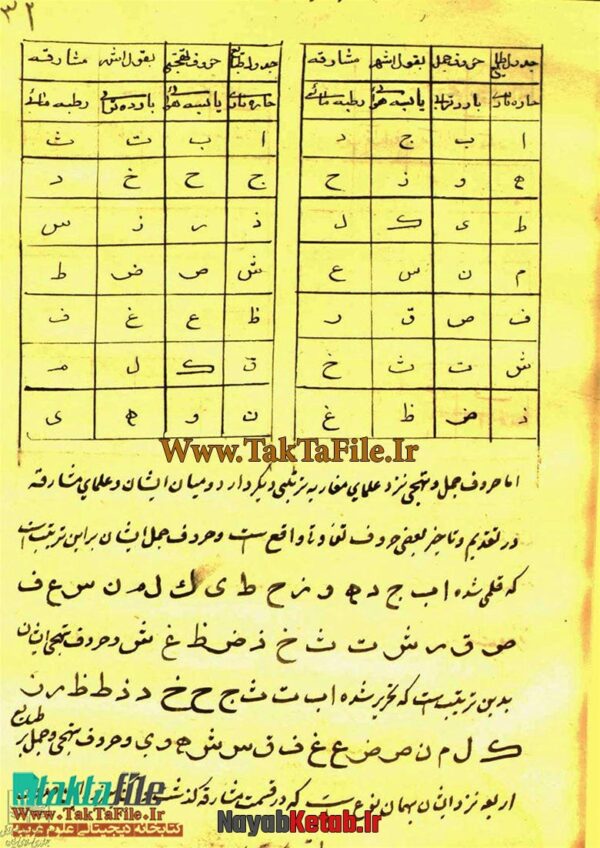 ۳۲
جدول طبایع حروف جمل بقول اشهر مشارقه
حاره ناری بارده ترابی یابسه هوائی رطبه مائی
ا ب ج د
ه و ز ح
ط ی ک ل
م ن س ع
ف ص ق ر
ش ت ث خ
ذ ض ظ غ
حروف تهجی بقول اشهر مشارقه
حاره ناری یابسه هوائی بارده ترابی رطبه مائی
ا ب ت ث
ج ح خ د
ذ ر ز س
ش ص ض ط
ظ ع غ ف
ق ک ل م
ن و ه ی
Www.TakTaFile.Ir
اما حروف جمل و تهجی نزد علمای مغاربه ترتیبی دیگر دارد و میان ایشان و علمای مشارقه
در تقدیم و تاخیر بعضی حروف تفاوتها واقع است و حروف جمل ایشان بر این ترتیب است
که قلمی شده ا ب ج د ه و ز ح ط ی ک ل م ن س ع ف
ص ق ر ش ت ث خ ذ ض ظ غ ش و حروف تهجی ایشان
بدین ترتیب است که تحریر شده ا ب ت ث ج ح خ د ذ ط ظ ر ز
ک ل م ن ص ض ع غ ف ق س ش ه و ی و حروف تهجی و جمل بر طبایع
اربعه نزد ایشان بهمان نوع است که در قسمت مشارقه گذشت
taktafile
Www.TakTaFile.Ir
کتابخانه دیجیتالی علوم غریبه
NayabKetab.Ir